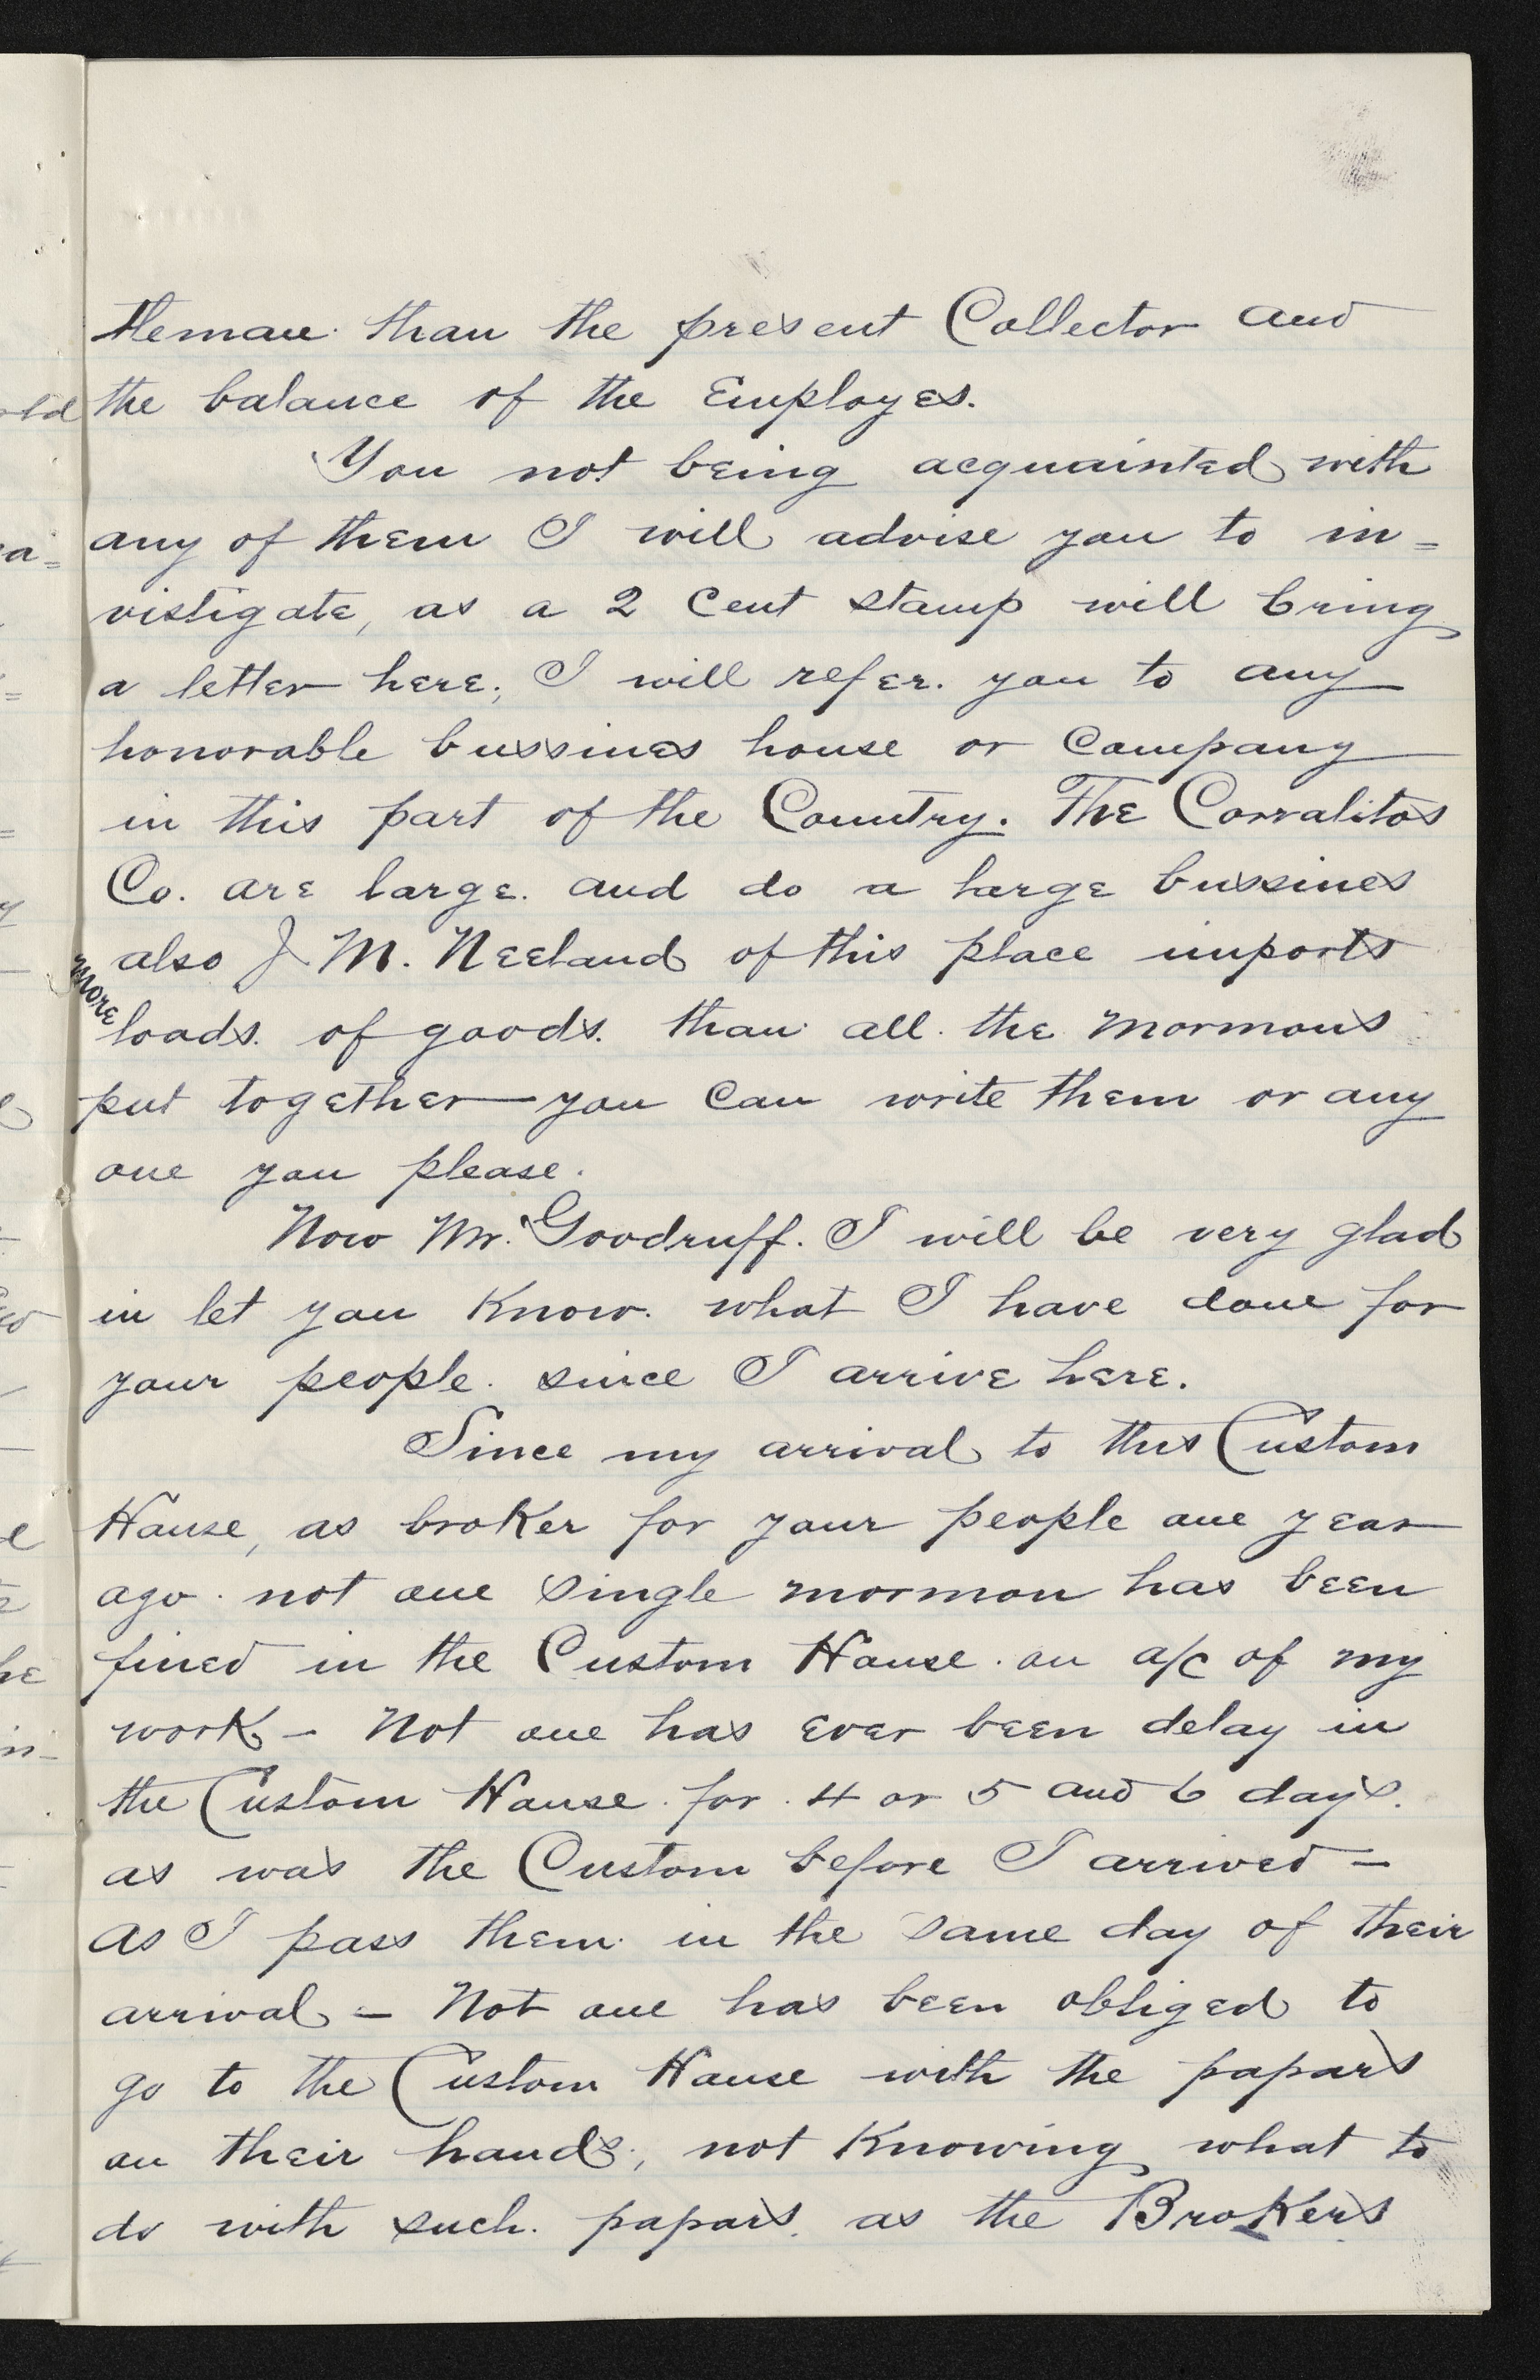 tleman than the present Collector and
the balance of the Employes.
You not being acquainted with
any of them I will advise you to in=
vistigate, as a 2 Cent stamp will bring
a letter here; I will refer. you to any
honorable bussines house or Company
in this part of the Country. The Corralitos
Co. are large. and do a large bussines
also J. M. Neeland of this place imports
more
loads. of goods. than all. the mormons
put together— you Can write them or any
one you please.
Now Mr. Goodruff. I will be very glad
in let you Know. what I have done for
your people. since I arrive here.
Since my arrival to this Custom
House, as broKer for your people one year
ago. not one single mormon has been
fined in the Custom House. on a/c of my
work – Not one has ever been delay in
the Custom House. for. 4 or 5 and 6 days.
as was the Custom before I arrived –
as I pass them. in the same day of their
arrival – Not one has been obliged to
go to the Custom House with the papars
on their hands; not Knowing what to
do with such. papars. as the BroKers